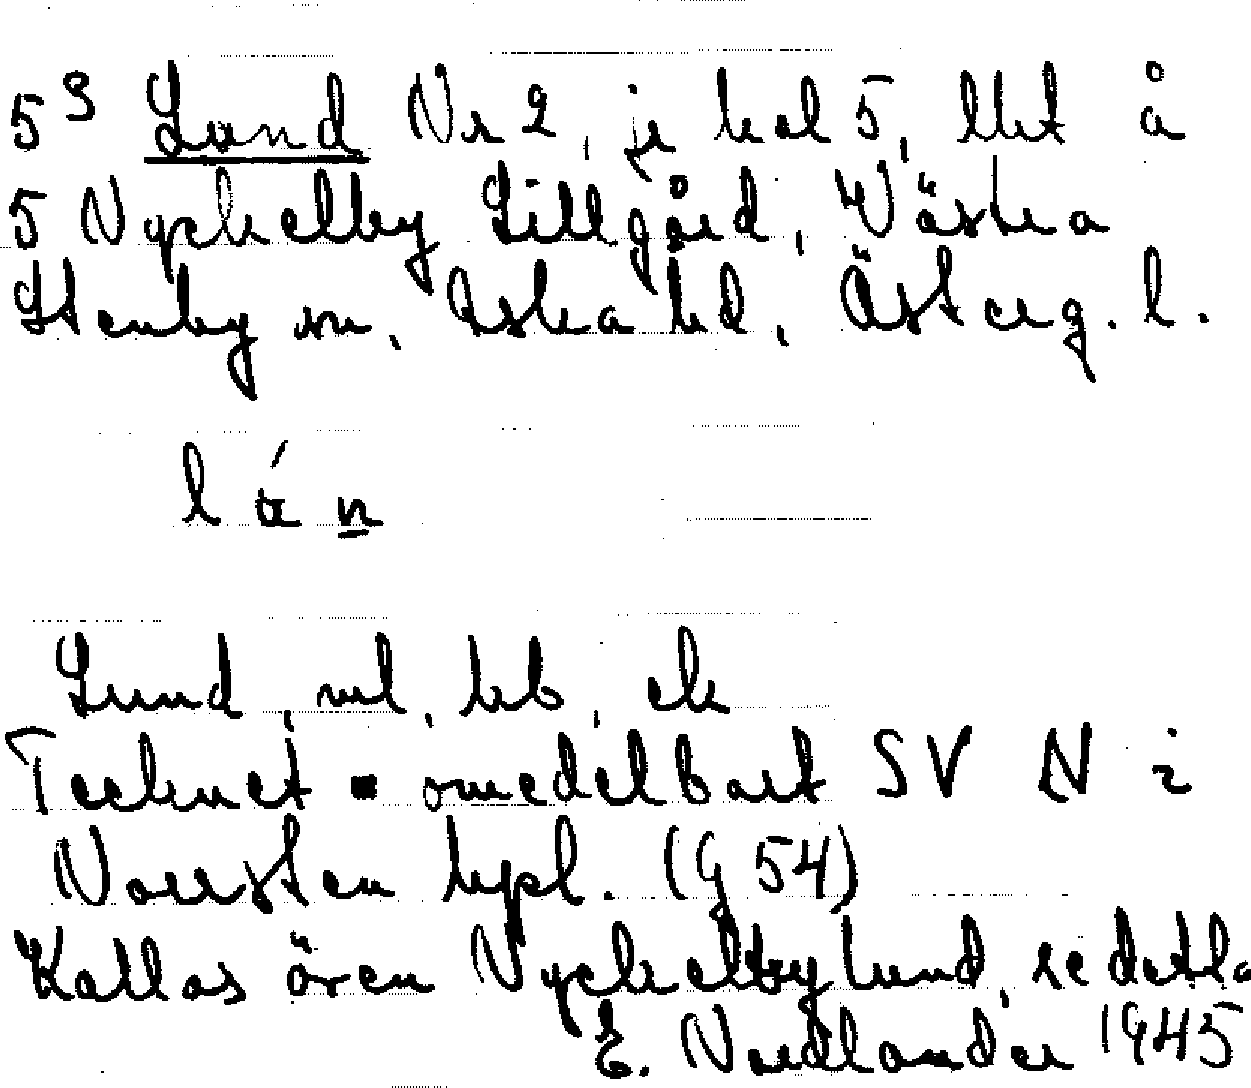 5³ Lund Nr 2, je kal 5, llht å
5 Nyckelby Lillgård, Västra
Stenby sn, Aska hd, Österg. l.
lún
Lund, vl, bb, ek
Tecknet ▪ omedelbart SV N i
Norrsten hpl. (g 54)
Kallas även Nyckelbylund, se detta
E. Nordlander 1945